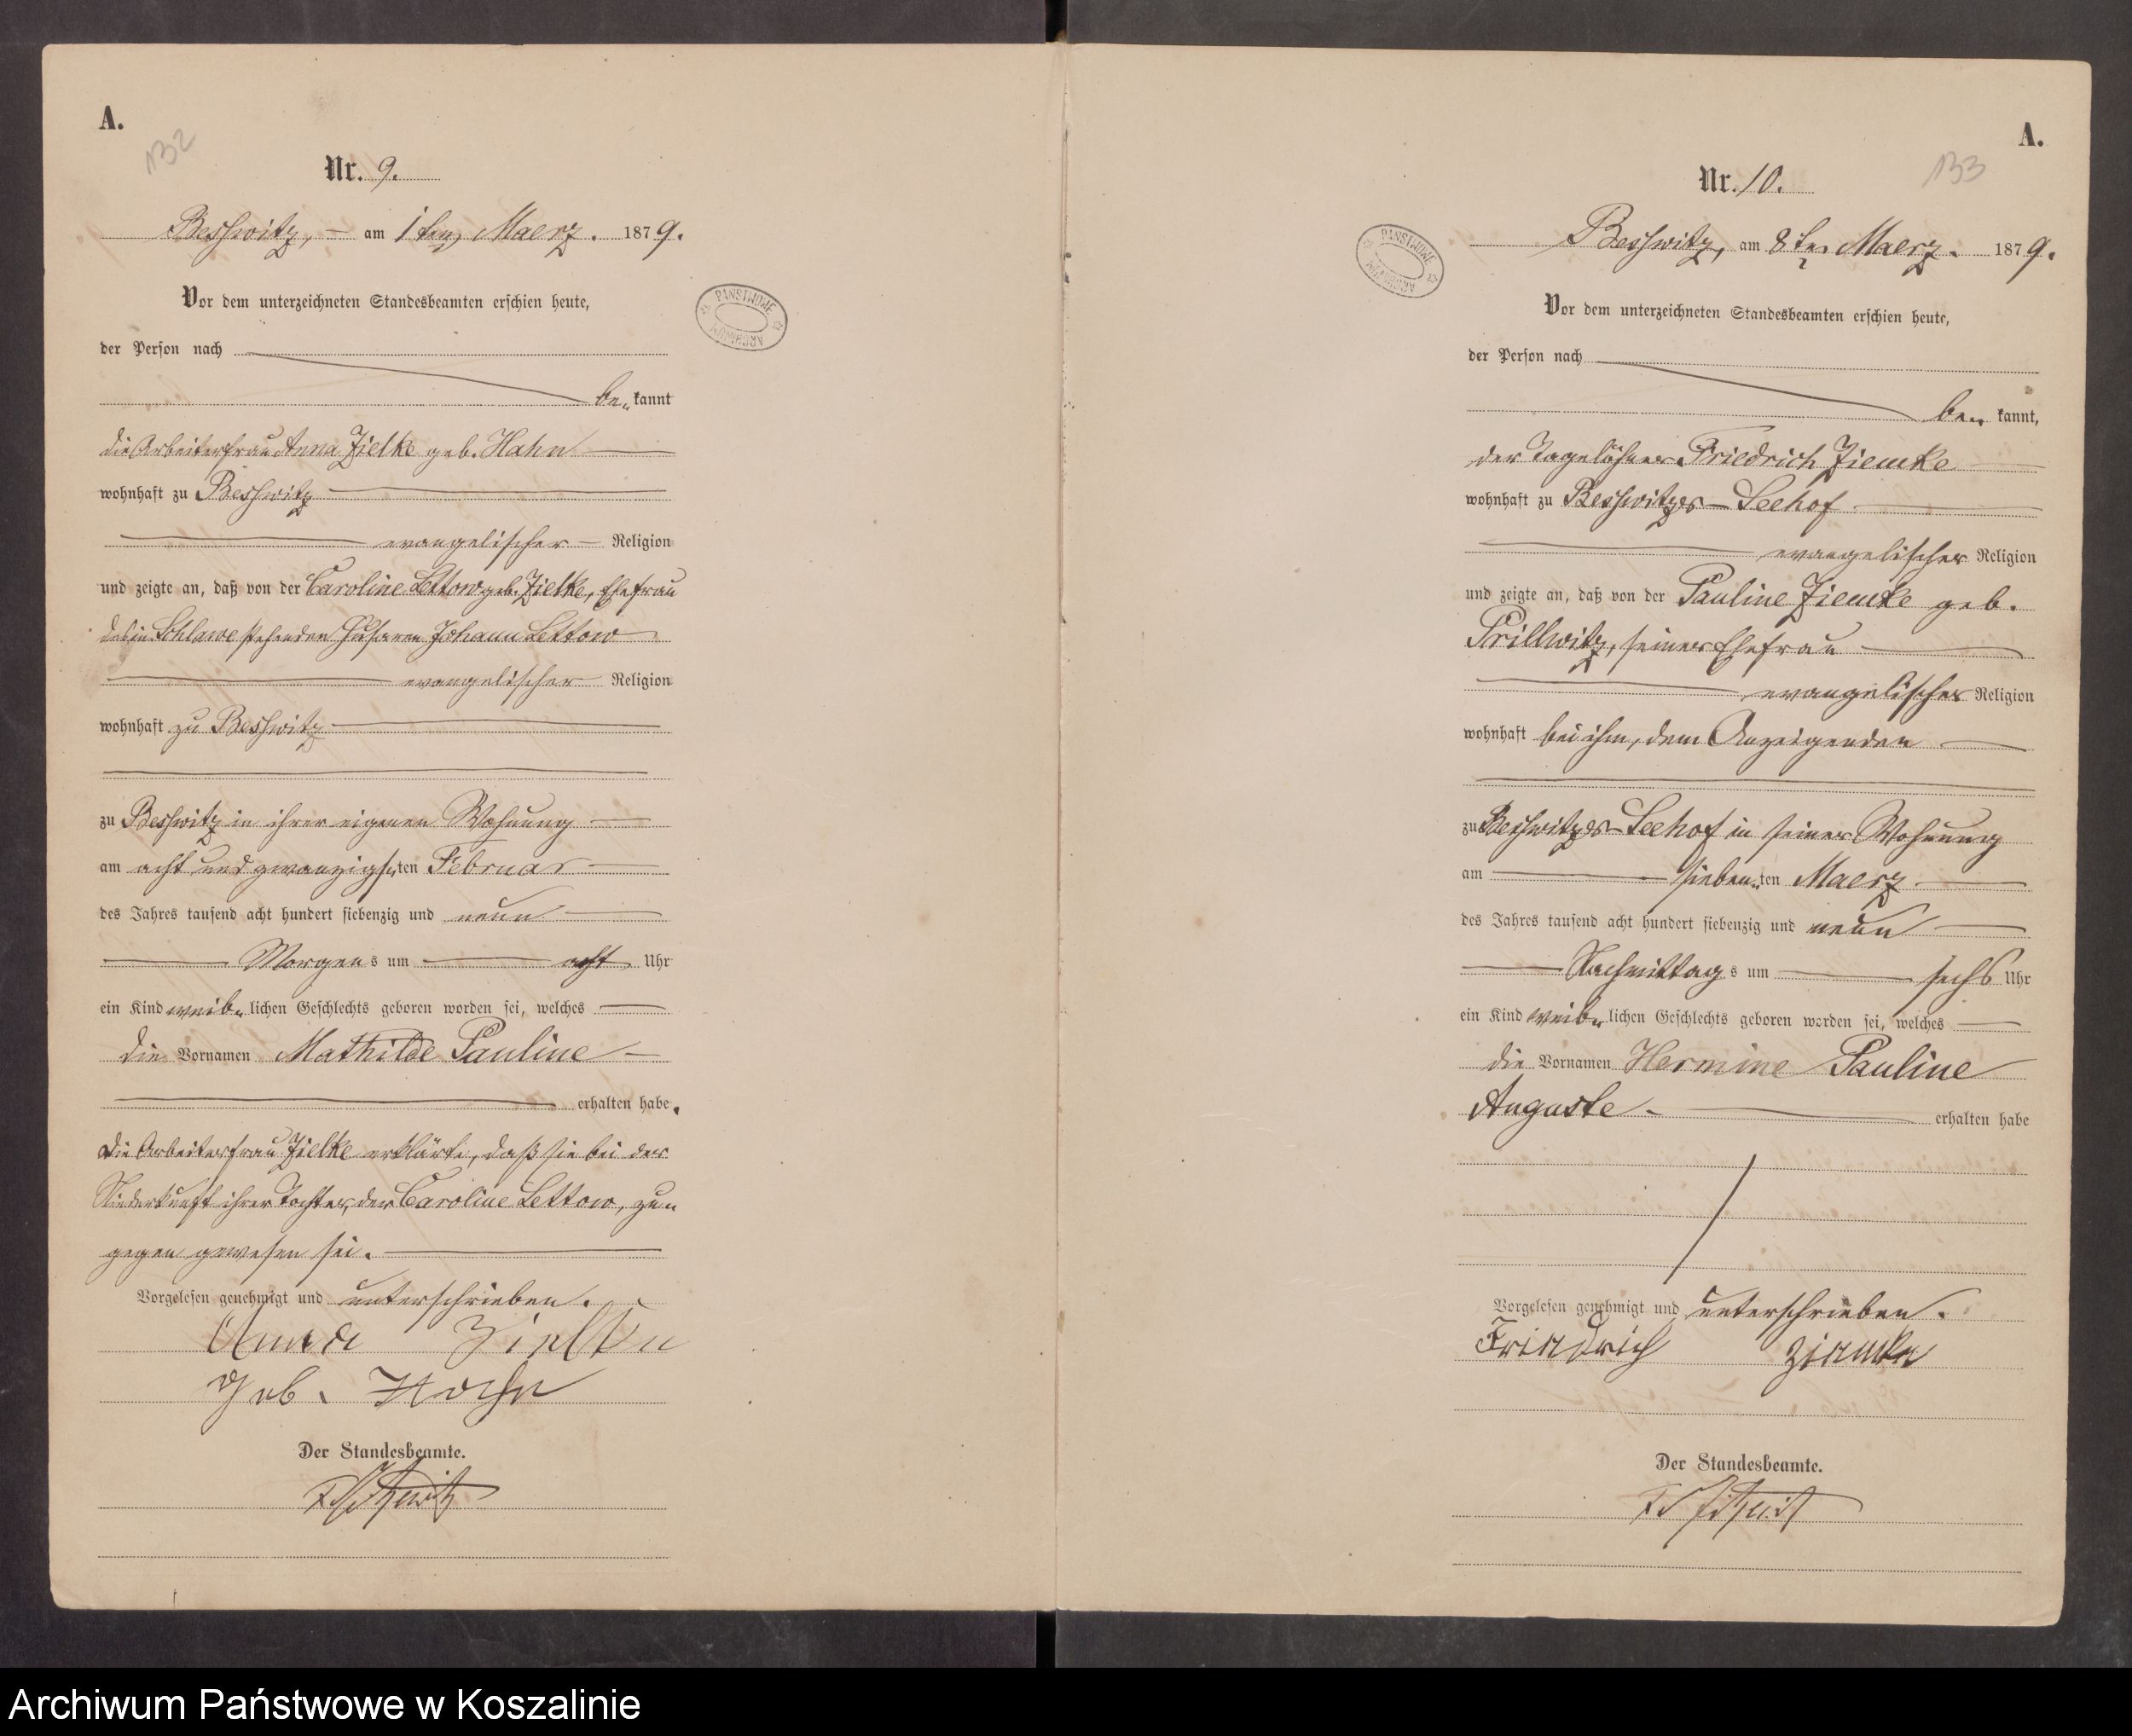 A.
132
Nr. 9.
Besswitz, am 1ten Maerz. 1879.
Vor dem unterzeichneten Standesbeamten erschien heute,
der Person nach
be„ kannt
die Arbeiterfrau Anna Zielke geb. Hahn
wohnhaft zu Besswitz
evangelischer Religion
und zeigte an, daß von der Caroline Lettow geb. Zielke, Ehefrau
des in Schlawe stehenden Husaren Johann Lettow
evangelischer Religion
wohnhaft zu Besswitz
zu Besswitz in ihrer eigenen Wohnung
am acht und zwanzigsten Februar
des Jahres tausend acht hundert siebenzig und neun
Morgens um acht Uhr
ein Kind weib„lichen Geschlechts geboren worden sei, welches
die Vornamen Mathilde Pauline
erhalten habe.
Die Arbeiterfrau Zielke erklärte, daß sie bei der
Niederkunft ihrer Tochter, der Caroline Lettow, zu„
gegen gewesen sei.
Vorgelesen genehmigt und unterschrieben.
Anna Zielke
geb. Hahn
Der Standesbeamte.
PANSTWOWE
ARCHIWUM
A.
133
Nr. 10.
Besswitz, am 8ten Maerz. 1879.
Vor dem unterzeichneten Standesbeamten erschien heute,
der Person nach
be„ kannt,
der Tagelöhner Friedrich Ziemke
wohnhaft zu Besswitzer-Seehof
evangelischer Religion
und zeigte an, daß von der Pauline Ziemke geb.
Prillwitz, seiner Ehefrau
evangelischer Religion
wohnhaft bei ihm, dem Anzeigenden
zu Besswitzer-Seehof in seiner Wohnung
am sieben„ten Maerz
des Jahres tausend acht hundert siebenzig und neun
Nachmittags um sechs Uhr
ein Kind weib„lichen Geschlechts geboren worden sei, welches
die Vornamen Hermine Pauline
Auguste
erhalten habe
Vorgelesen genehmigt und unterschrieben.
Friedrich Ziemke
Der Standesbeamte.
PANSTWOWE
ARCHIWUM
Archiwum Państwowe w Koszalinie